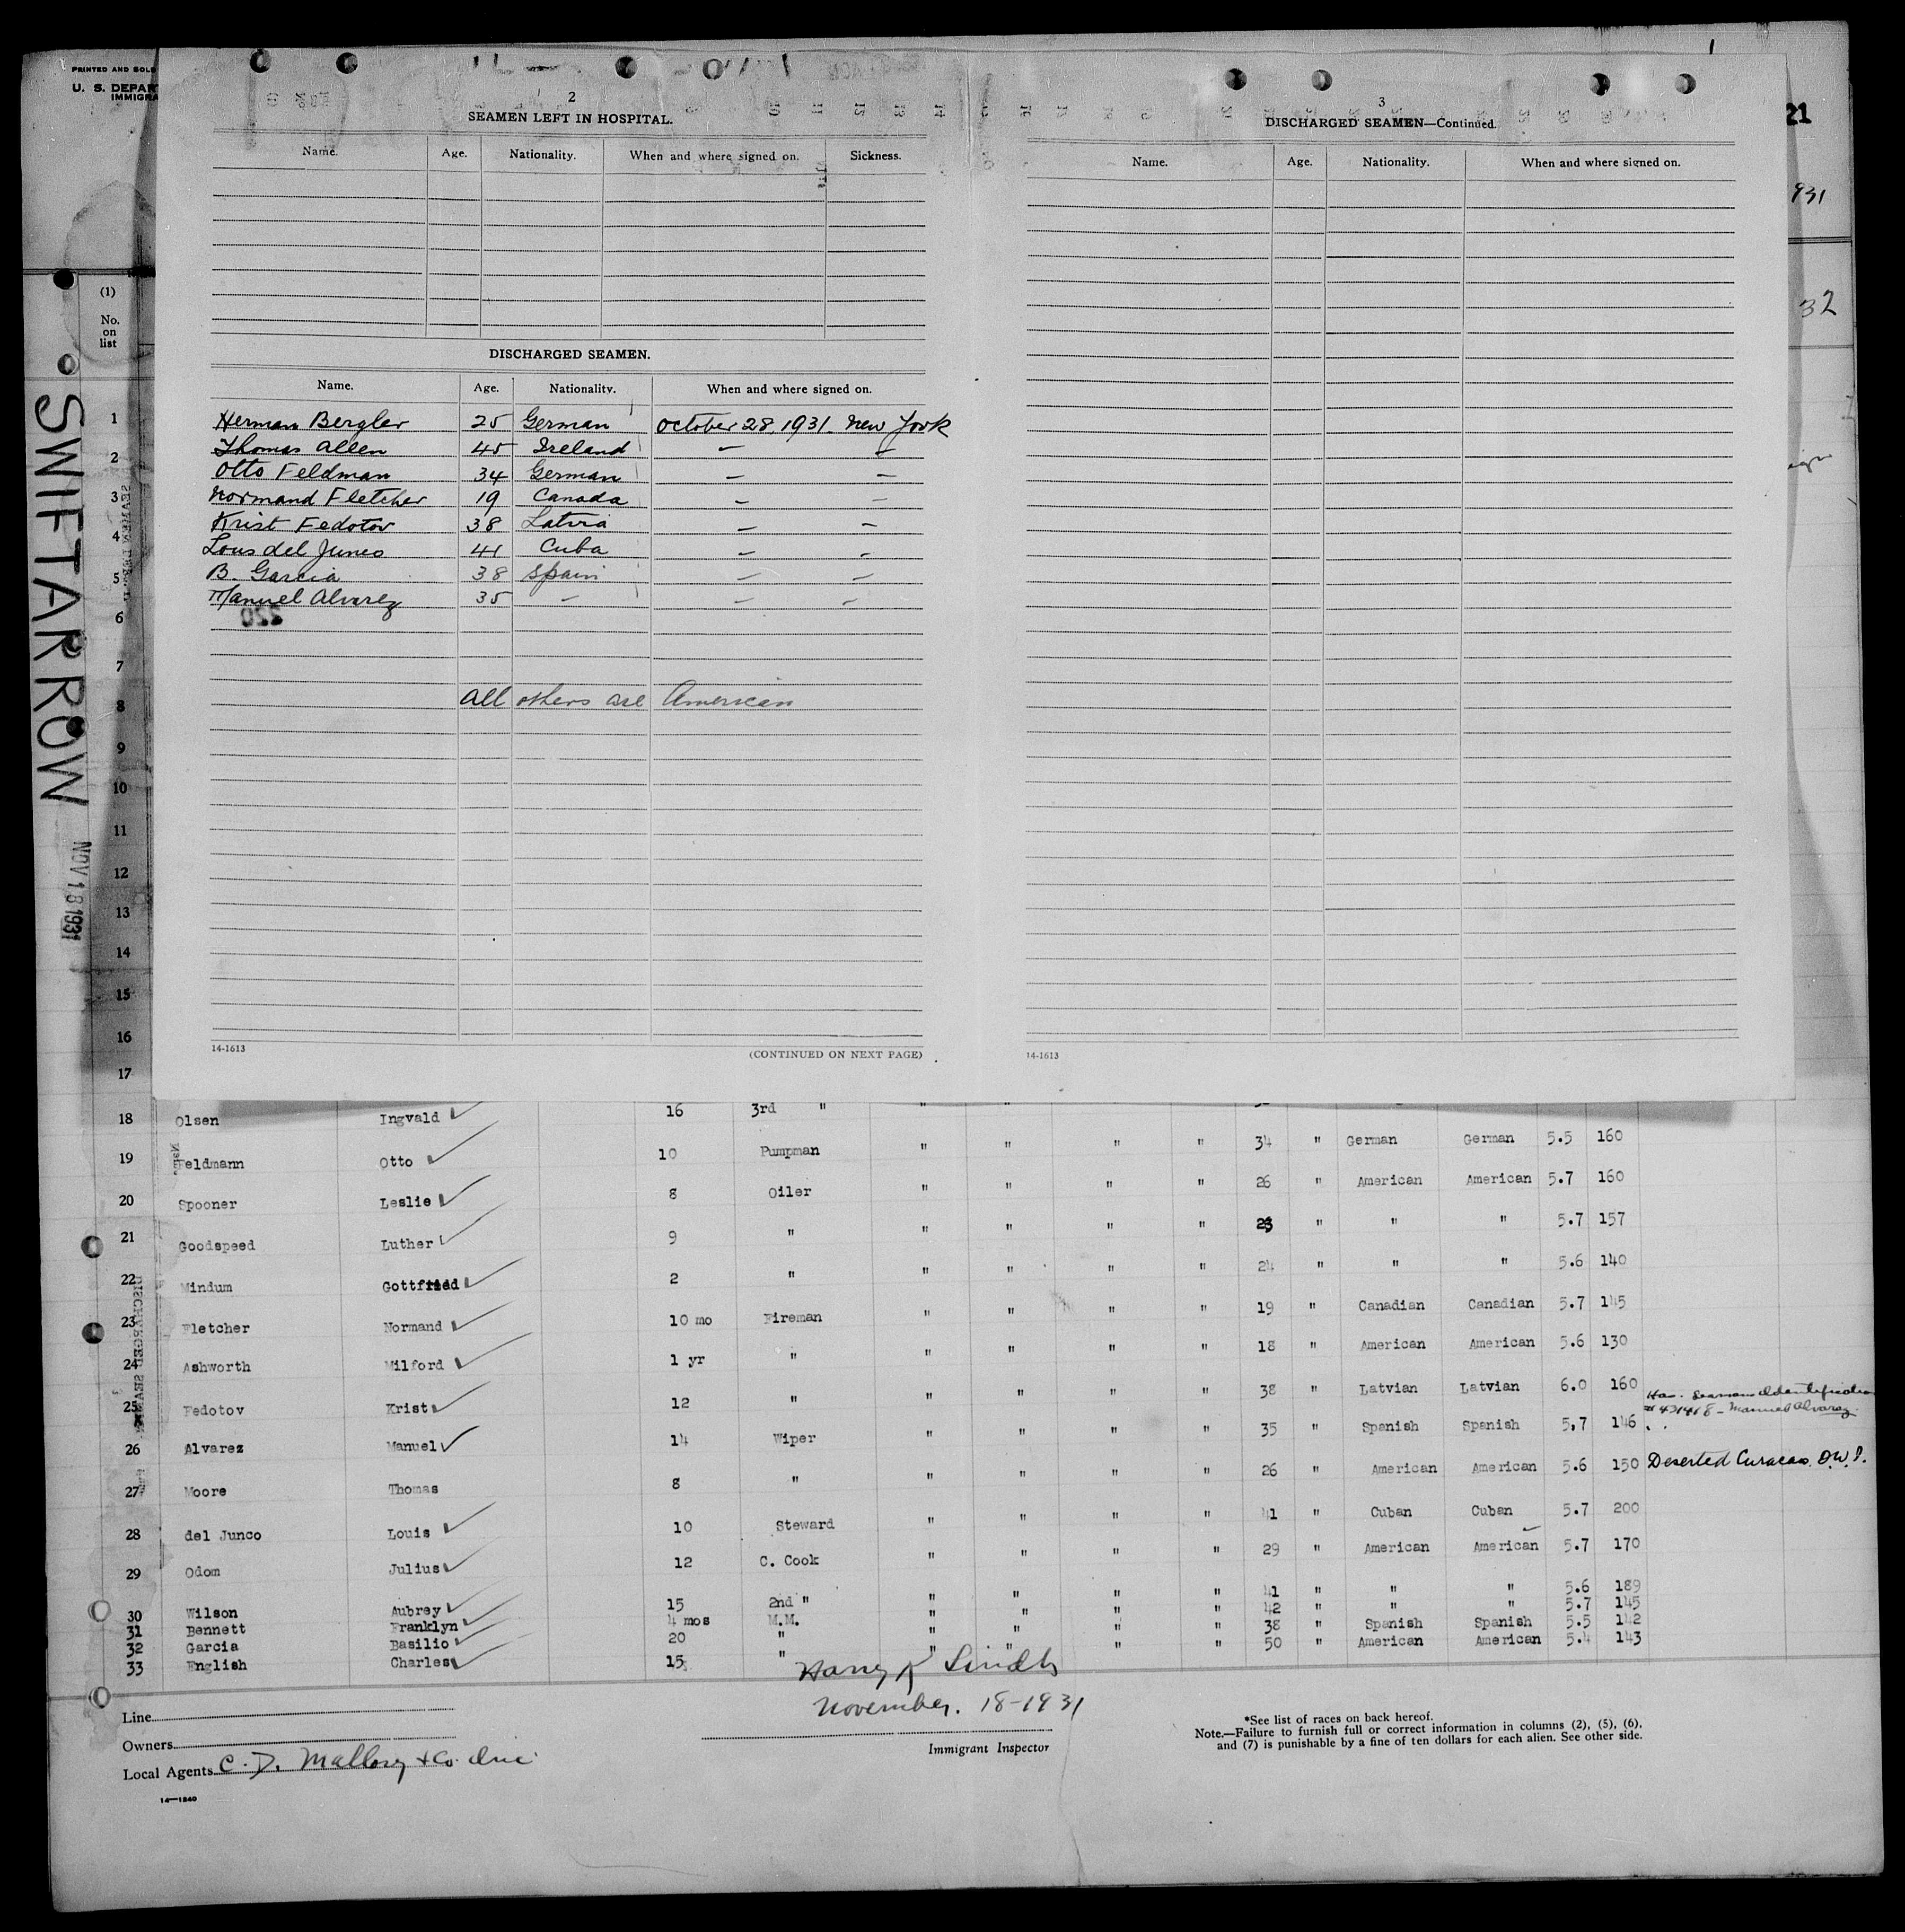 PRINTED AND SOLD
U. S. DEPAR
IMMIGRA
21
931
32
(1)
No.
on
list
SWIFTARROW
NOV 18 1931
2
SEAMEN LEFT IN HOSPITAL.
Name. Age. Nationality. When and where signed on. Sickness.
DISCHARGED SEAMEN.
Name. Age. Nationality. When and where signed on.
Herman Bergler 25 German October 28 1931 New York
Thomas Allen 45 Ireland — —
Otto Feldman 34 German — —
Normand Fletcher 19 Canada — —
Krist Fedotov 38 Latvia — —
Lous del Junco 41 Cuba — —
B. Garcia 38 Spain — —
Manuel Alvarez 35 — — —
220
All others are American
14-1613 (CONTINUED ON NEXT PAGE)
3
DISCHARGED SEAMEN—Continued.
Name. Age. Nationality. When and where signed on.
14-1613
1
2
3
4
5
6
7
8
9
10
11
12
13
14
15
16
17
18 Olsen Ingvald 16 3rd " " " " "
19 Feldmann Otto 10 Pumpman " " " " 34 " German German 5.5 160
20 Spooner Leslie 8 Oiler " " " " 26 " American American 5.7 160
21 Goodspeed Luther 9 " " " " " 23 " " " 5.7 157
22 Mindum Gottfried 2 " " " " " 24 " " " 5.6 140
23 Fletcher Normand 10 mo Fireman " " " " 19 " Canadian Canadian 5.7 145
24 Ashworth Milford 1 yr " " " " " 18 " American American 5.6 130
25 Fedotov Krist 12 " " " " " 38 " Latvian Latvian 6.0 160
Has. Seamans Identification
# 431418 - Manuel Alvarez
26 Alvarez Manuel 14 Wiper " " " " 35 " Spanish Spanish 5,7 146
27 Moore Thomas 8 " " " " " 26 " American American 5.6 150 Deserted Curacao. D.W.I.
28 del Junco Louis 10 Steward " " " " 41 " Cuban Cuban 5.7 200
29 Odom Julius 12 C. Cook " " " " 29 " American American 5.7 170
30 Wilson Aubrey 15 2nd " " " " " 41 " " " 5.6 189
31 Bennett Franklyn 4 mos M.M. " " " " 42 " " " 5.7 145
32 Garcia Basilio 20 " " " " " 38 " Spanish Spanish 5.5 142
33 English Charles 15 " " " " " 50 " American American 5.4 143
Harry Lindh
November. 18-1931
Immigrant Inspector
Line
Owners
Local Agents C. D. Mallory & Co. Inc.
14—1240
*See list of races on back hereof.
Note.—Failure to furnish full or correct information in columns (2), (5), (6),
and (7) is punishable by a fine of ten dollars for each alien. See other side.